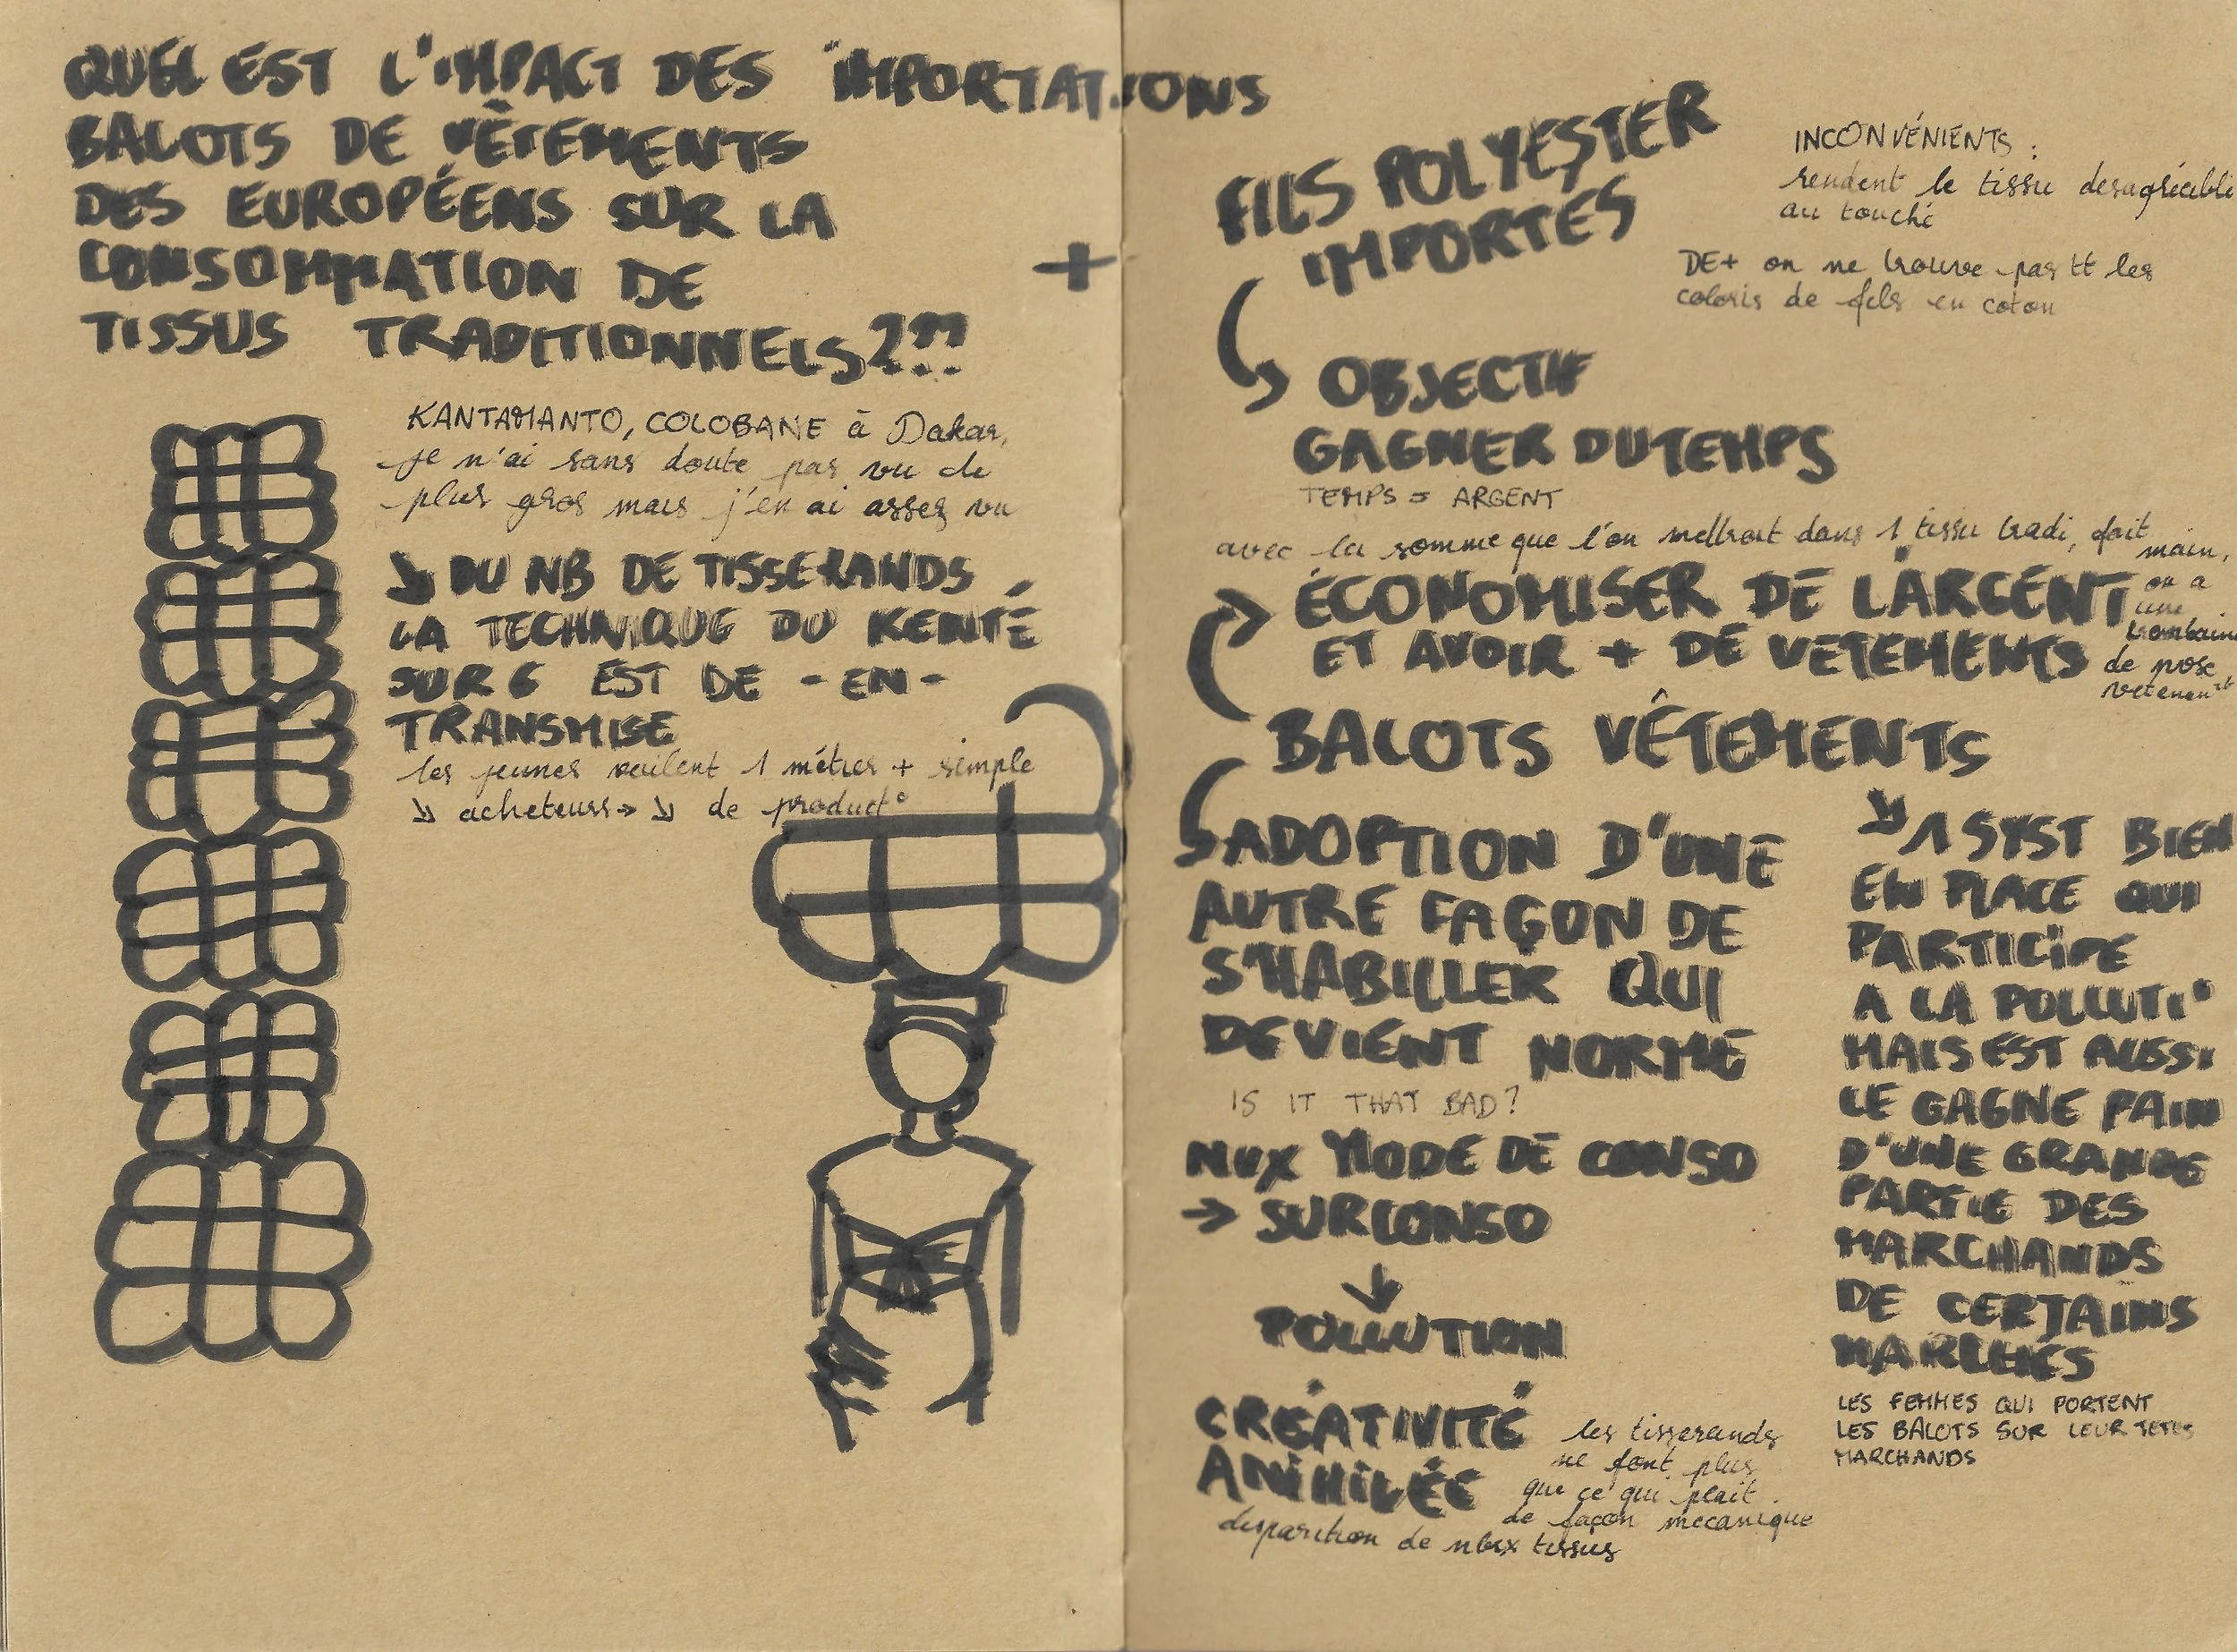 QUEL EST L'IMPACT DES IMPORTATIONS
BALOTS DE VÊTEMENTS
DES EUROPÉENS SUR LA
CONSOMMATION DE
TISSUS TRADITIONNELS???
KANTAMANTO, COLOBANE à Dakar,
je n'ai sans doute pas vu de
plus gros mais j'en ai assez vu
↘ DU NB DE TISSERANDS
LA TECHNIQUE DU KENTÉ
SUR 6 EST DE - EN -
TRANSMISE
les jeunes veulent 1 métier + simple
↘ acheteurs → ↘ de product°
+
FILS POLYESTER
IMPORTÉS
INCONVÉNIENTS :
rendent le tissu desagréable
au touché
DE + on ne trouve pas tt les
coloris de fils en coton
OBJECTIF
GAGNER DU TEMPS
TEMPS = ARGENT
avec la somme que l'on mettrait dans 1 tissu tradi, fait
main,
on a
une
trentaine
de pose
vetement
ÉCONOMISER DE L'ARGENT
ET AVOIR + DE VETEMENTS
BALOTS VÊTEMENTS
ADOPTION D'UNE
AUTRE FAÇON DE
S'HABILLER QUI
DEVIENT NORME
IS IT THAT BAD?
NVX MODE DE CONSO
→ SURCONSO
↓
POLLUTION
CRÉATIVITÉ
ANIHILÉE
les tisserands
ne font plus
que ce qui plait
de façon mecanique
disparition de nbrx tissus
↘ 1 SYST BIEN
EN PLACE QUI
PARTICIPE
A LA POLLUTI°
MAIS EST AUSSI
LE GAGNE PAIN
D'UNE GRANDE
PARTIE DES
MARCHANDS
DE CERTAINS
MARCHÉS
LES FEMMES QUI PORTENT
LES BALOTS SUR LEUR TETES
MARCHANDS